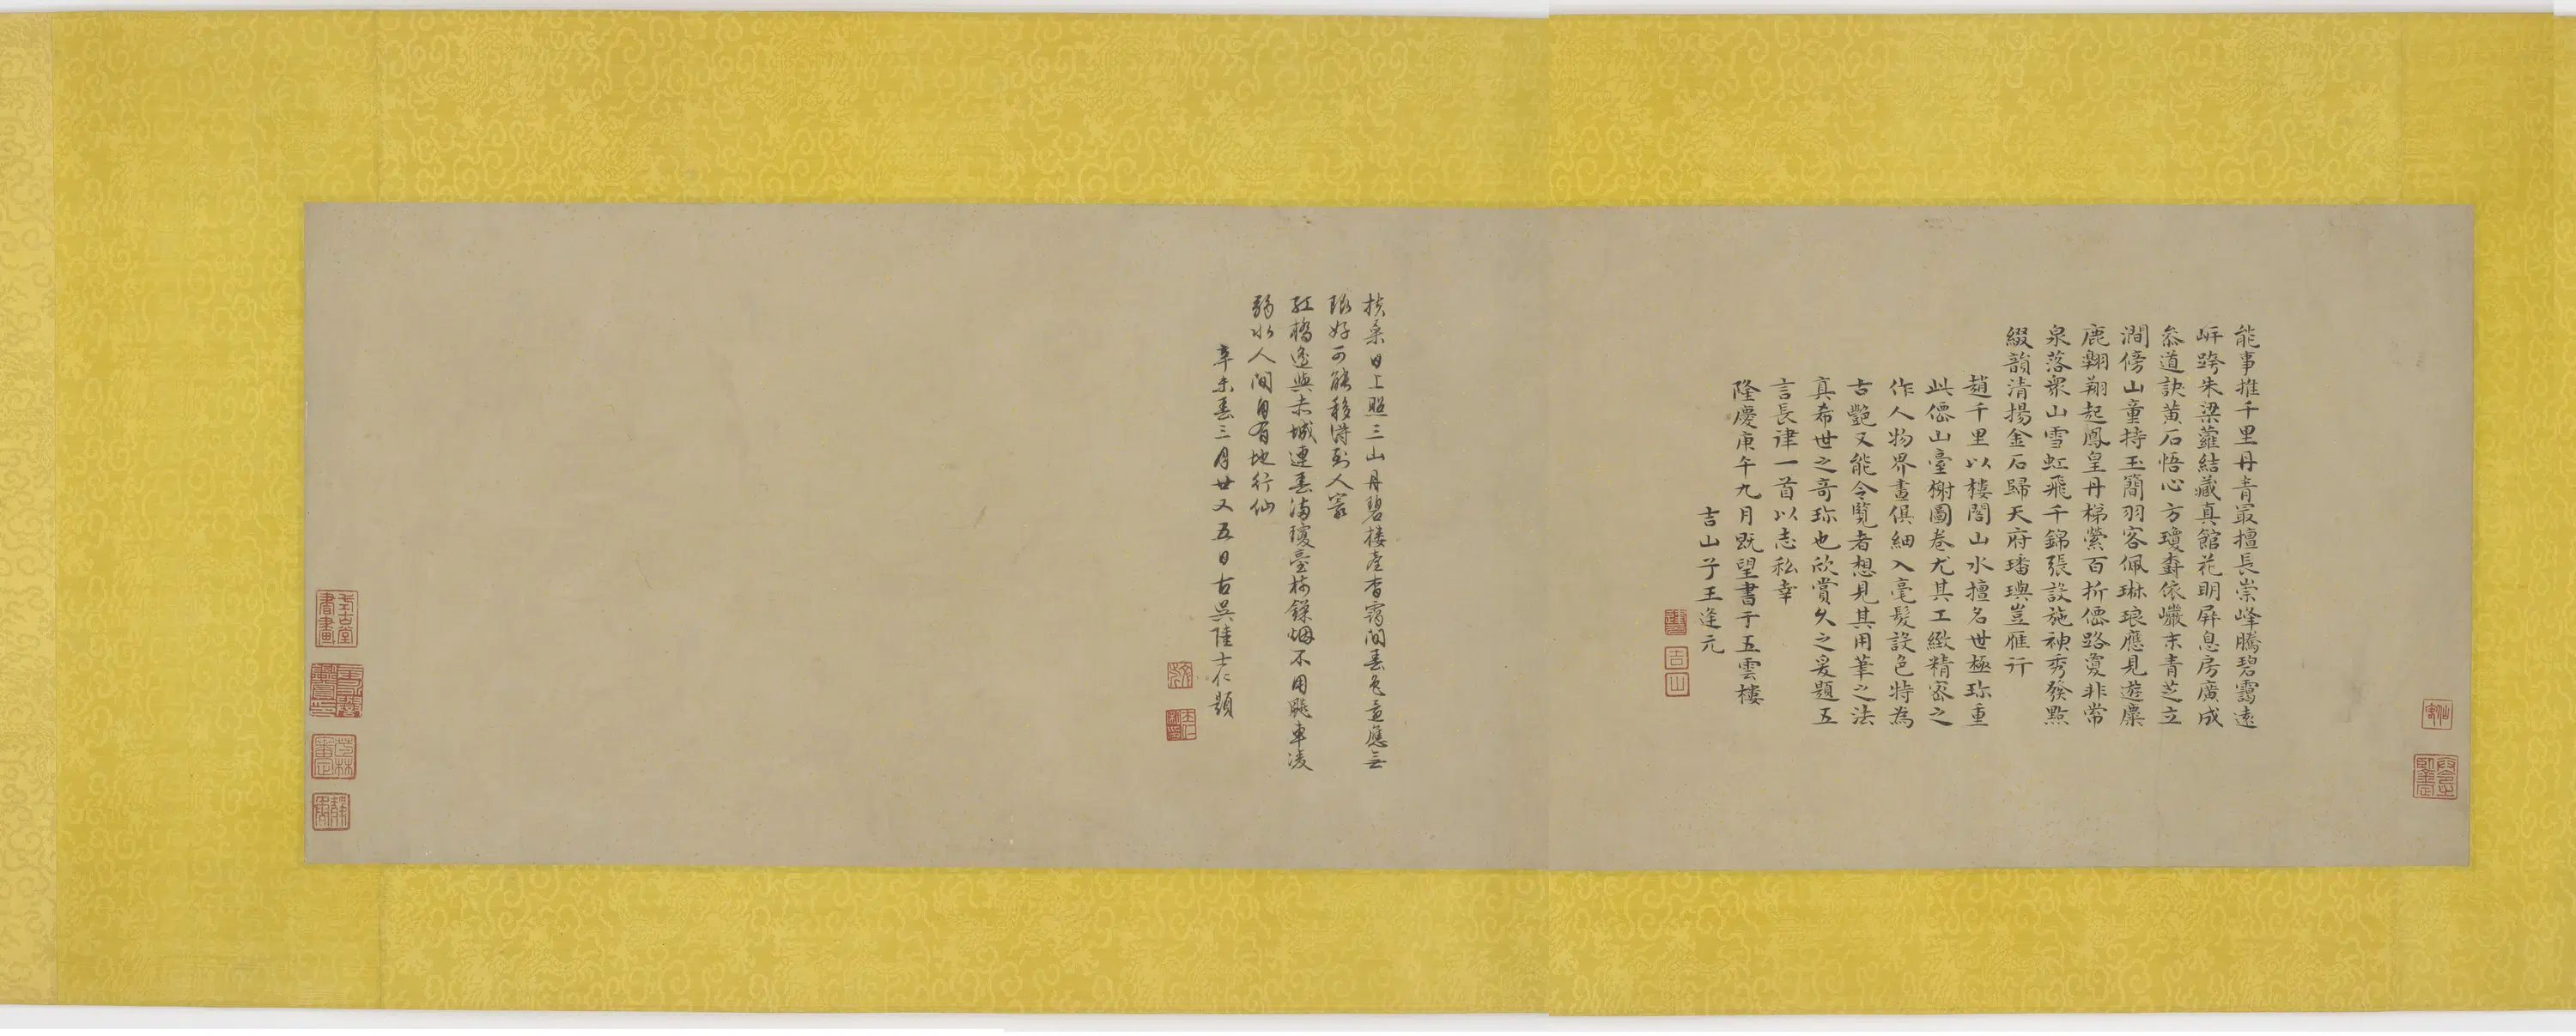 能事推千里丹青最擅長崇峰騰碧靄遠
岍跨朱梁蘿結藏真館花明屏息房廣成
叅道訣黃石悟心方瓊樹依巖末青芝立
澗傍山童持玉簡羽客佩琳琅應見遊麋
鹿翱翔起鳳皇丹梯縈百折僊路敻非常
泉落衆山雪虹飛千錦張設施神秀發點
綴韻清揚金石歸天府璠璵豈雁行
趙千里以樓閣山水擅名世極珎重
此僊山臺榭圖卷尤其工緻精密之
作人物界畫俱細入毫髮設色特為
古艷又能令覽者想見其用筆之法
真希世之奇珎也欣賞久之爰題五
言長律一首以志私幸
隆慶庚午九月既望書于五雲樓
吉山子王逢元
吉山
扶桒日上照三山丹碧樓臺杳靄間春色並應無
限好可能移得到人寰
紅橋遙與赤城連春滿瓊臺樹鎖烟不用飈車凌
弱水人間自有地行仙
辛未春三月廿又五日古吳陸士仁題